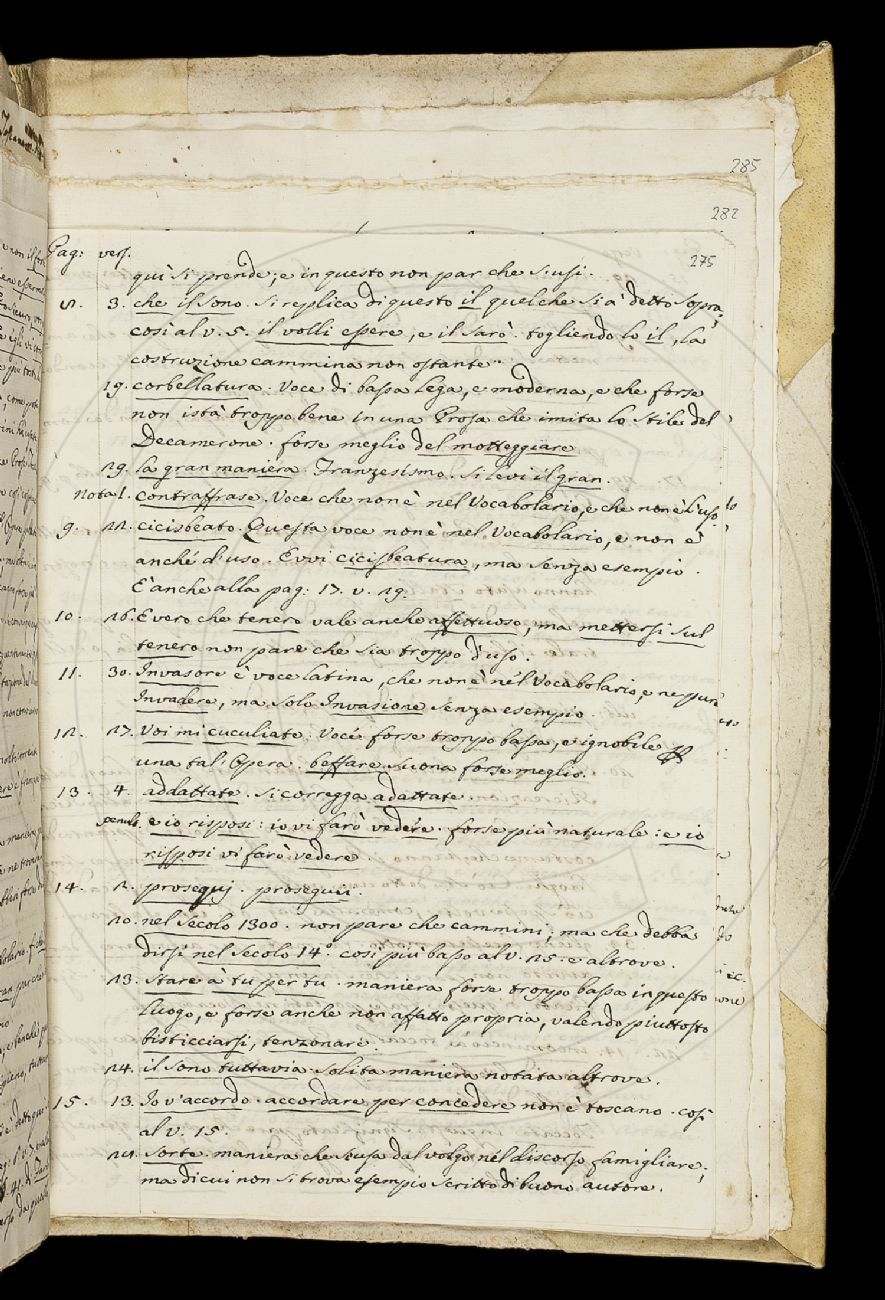 285
282
275
Pag: vers.
quì si prende; e in questo non par che s'usi.
3. che il sono. si replica di questo il quel che si à detto sopra;
così al v. 5. il volli essere, e il sarò. togliendo lo il, la
costruzione cammina non ostante.
19. corbellatura. Voce di bassa lega, e moderna, e che forse
non istà troppo bene in una Prosa che imita lo stile del
Decamerone. forse meglio del motteggiare
29. la gran maniera. Franzesismo. si levi il gran.
nota 1. contraffrase. Voce che non è nel Vocabolario, e che non è d'uso
9. 22. cicisbeato. Questa voce non è nel Vocabolario, e non è
anché d'uso. Evvi cicisbeatura, ma senza esempio.
E' anche alla pag: 17. v. 29.
10. 26. E vero che tenero vale anche affettuoso, ma mettersi sul
tenero non pare che sia troppo d'uso.
11. 30. Invasore è voce latina, che non è nel Vocabolario, e neppure
Invadere, ma solo Invasione senza esempio.
12. 27. Voi mi cuculiate. Voce forse troppo bassa, e ignobile
una tal' Opera. beffare suona forse meglio.
13. 4. addattate. si corregga adattate.
penult. e io risposi: io vi farò vedere. forse più naturale: e io
risposi vi farò vedere.
14. 2. prosequj. proseguii.
20. nel secolo 1300. non pare che cammini, ma che debba
dirsi nel secolo 14.° così più basso al v. 25. e altrove.
23. stare à tu per tu. maniera forse troppo bassa in questo
luogo, e forse anche non affatto propria, valendo piuttosto
bisticciarsi, tenzonare.
24. il sono tuttavia solita maniera notata altrove.
15. 13. Io v'accordo. accordare per concedere non è toscano. così
al v. 15.
24. sorte. maniera che s'usa dal volgo nel discorso famigliare;
ma di cui non si trova esempio scritto di buono autore.